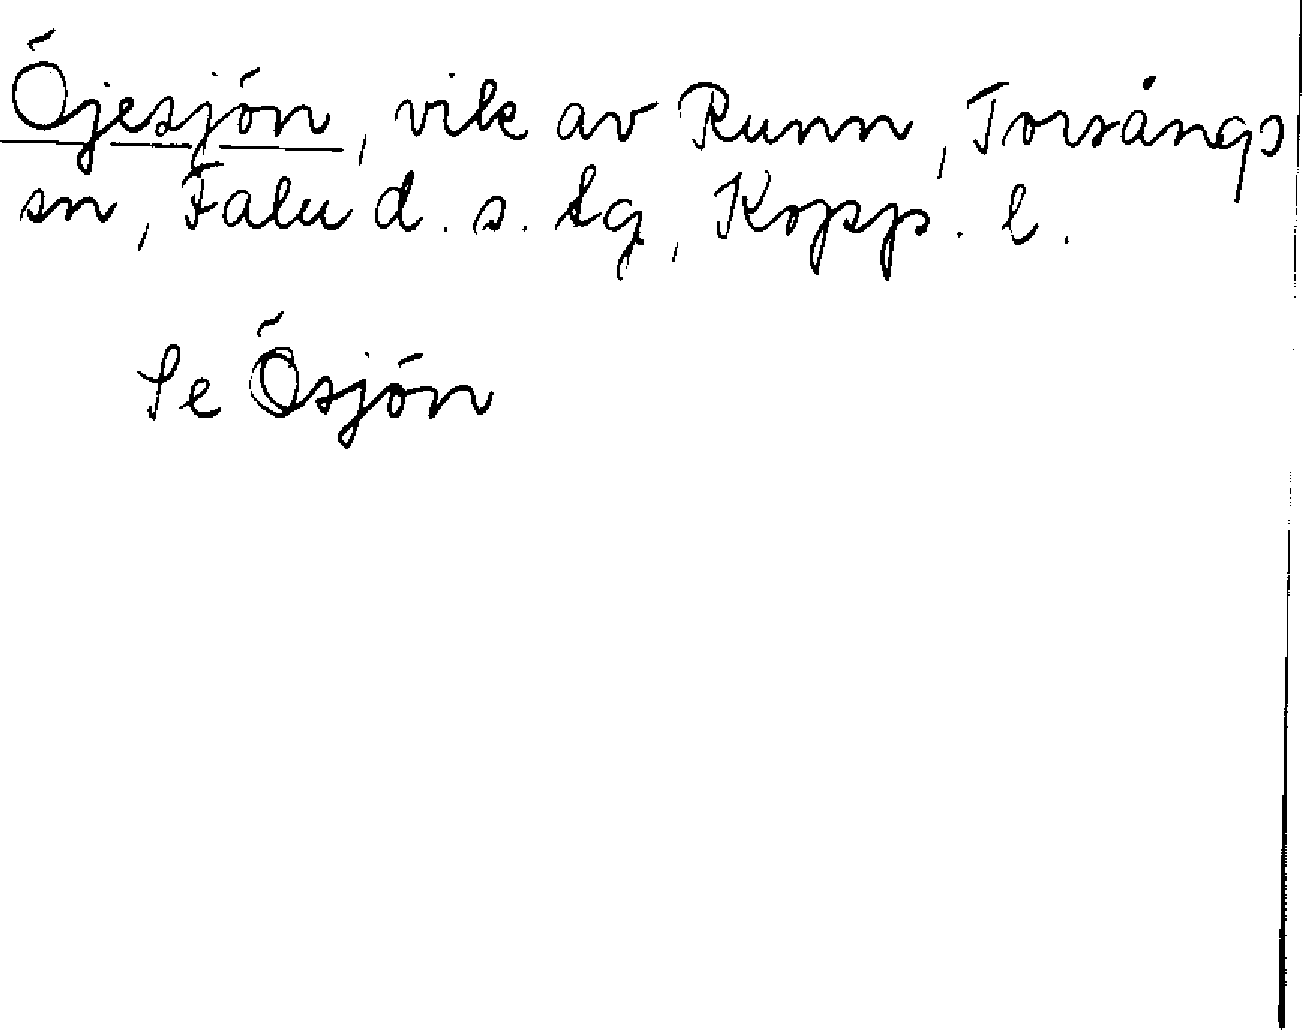 Öjesjön, vik av Runn, Torsångs
sn, Falu d. s. tg, Kopp. l.
Se Ösjön